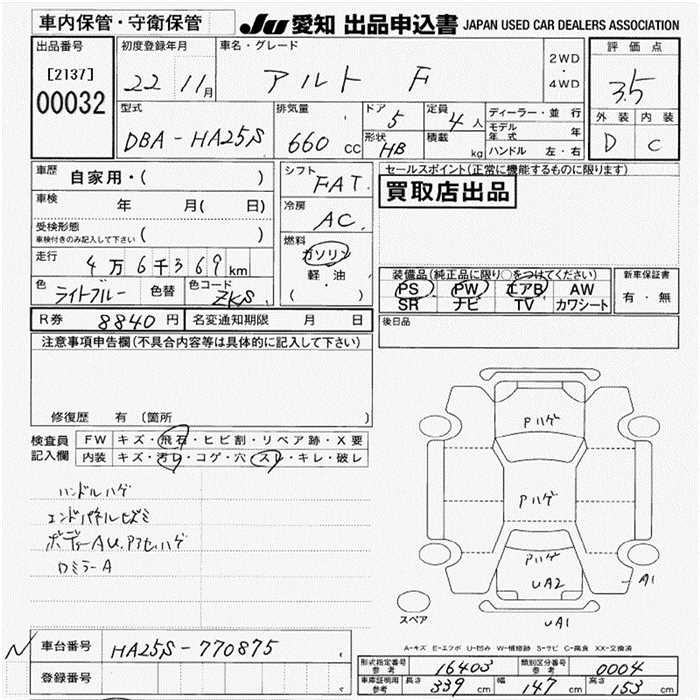 車内保管・守衛保管 JU 愛知 出品申込書 JAPAN USED CAR DEALERS ASSOCIATION
出品番号 初度登録年月 車名・グレード 評価点
[2137] 22 11月 アルト F 2WD・4WD 3.5
00032
型式 排気量 ドア 5 定員 4人 ディーラー・並行 外装 内装
DBA-HA25S 660cc 形状 HB 積載 kg モデル年式 年 D C
ハンドル 左・右
車歴 自家用・( ) シフト FAT. セールスポイント(正常に機能するものに限ります)
買取店出品
車検 年 月( 日) 冷房 AC.
受検形態
車検付きのみ記入して下さい ( )
燃料 ガソリン
走行 4万6千369km 軽油
( ・ )
装備品(純正品に限り○をつけてください) 新車保証書
色 ライトブルー 色替 色コード ZKS PS PW エアB AW 有・無
SR ナビ TV カワシート
R券 8840円 名変通知期限 月 日 後日品
注意事項申告欄(不具合内容等は具体的に記入して下さい)
修復歴 有 (箇所 )
検査員 FW キズ・飛石・ヒビ割・リペア跡・X要
記入欄 内装 キズ・汚レ・コゲ・穴・スレ・キレ・破レ
ハンドルハゲ
エンドパネルヒズミ
ボディーAU.Pアセハゲ
ロミラーA
Pハゲ
Pハゲ
Pハゲ
UA2
A1
UA1
スペア
A-キズ E-エクボ U-凹み W-補修跡 S-サビ C-腐食 XX-交換済
車台番号 HA25S-770875
登録番号
形式指定番号参考 16403 類別区分番号参考 0004
車庫証明用参考 長さ 339cm 幅 147cm 高さ 153cm